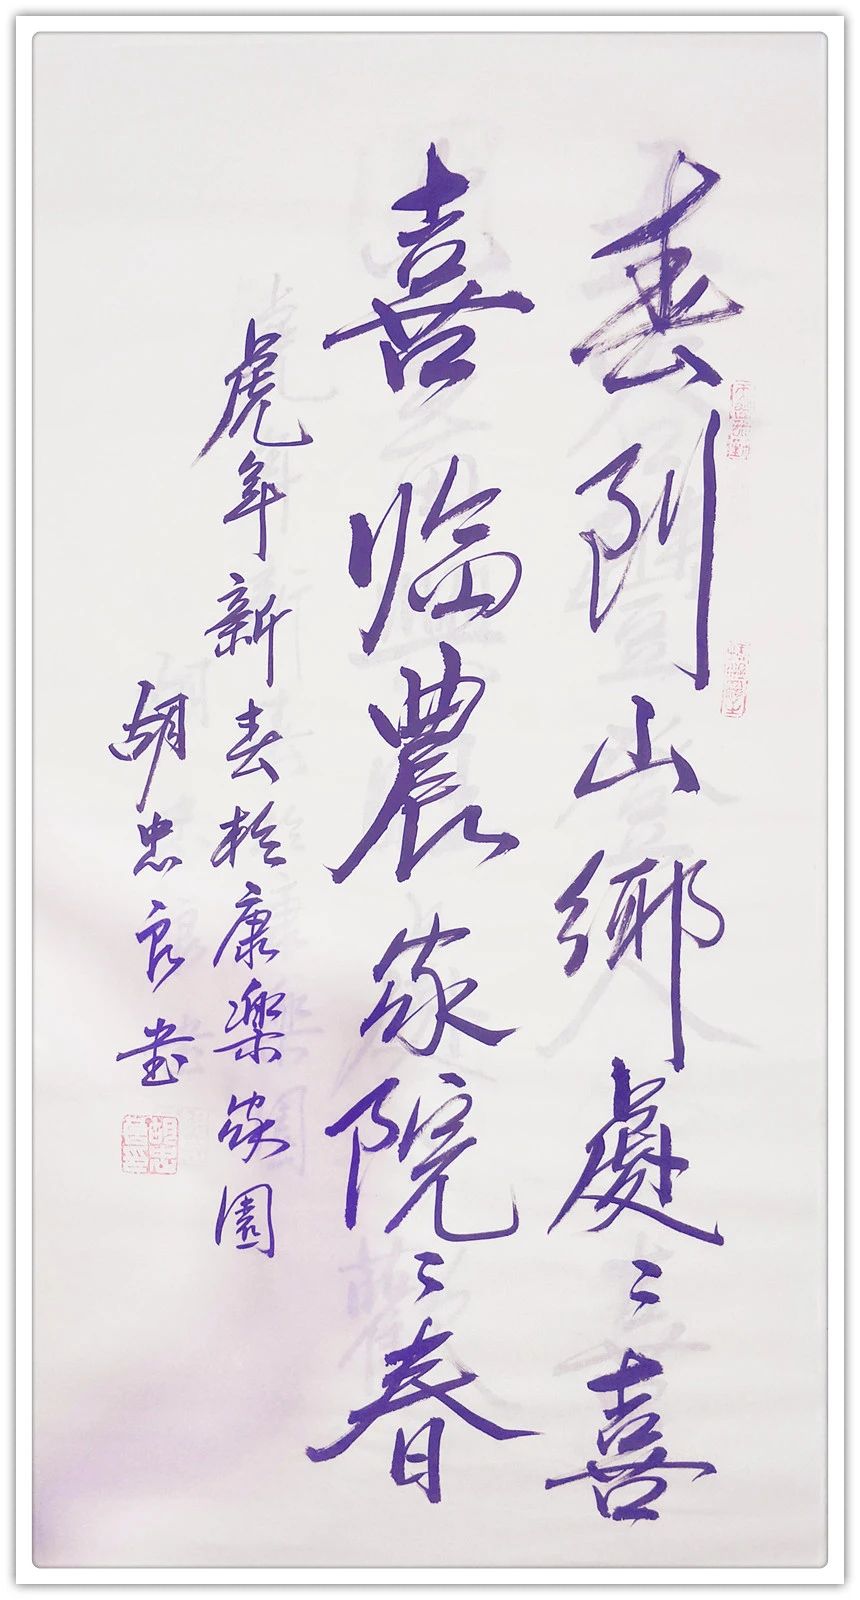 春到山鄉處〻喜
喜临農家院〻春
虎年新春於康樂家園
胡忠良书